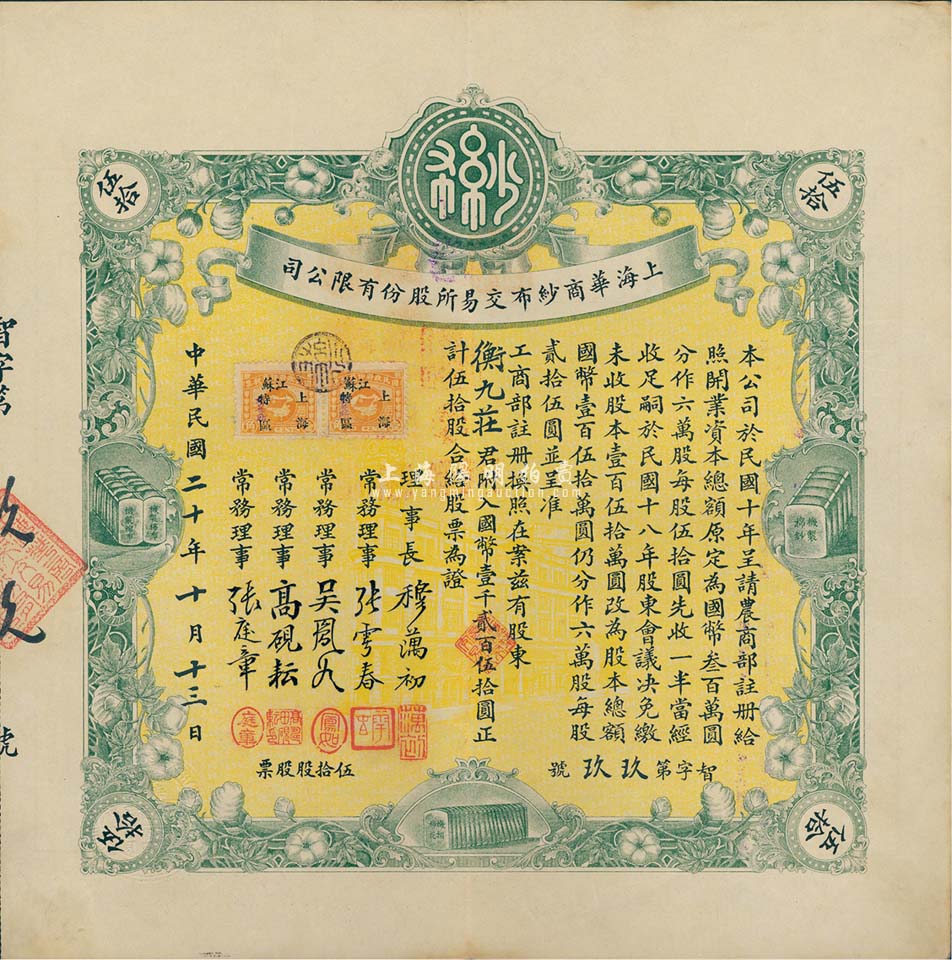 紗布
伍拾
伍拾
上海華商紗布交易所股份有限公司
本公司於民國十年呈請農商部註冊給
照開業資本總額原定為國幣叁百萬圓
分作六萬股每股伍拾圓先收一半當經
收足嗣於民國十八年股東會議決免繳
未收股本壹百伍拾萬圓改為股本總額
國幣壹百伍拾萬圓仍分作六萬股每股
貳拾伍圓並呈准
工商部註冊換照在案茲有股東
衡九莊君附入國幣壹千貳百伍拾圓正
計伍拾股合給股票為證
理事長 穆藕初
常務理事 張雩春
常務理事 吳鳳如
常務理事 高硯耘
常務理事 張庭章
中華民國二十年十月十三日
江蘇
上海
特區
江蘇
上海
特區
智字第玖玖號
伍拾股股票
伍拾
伍拾
智字第玖玖號
機製
棉紗
上海陽明拍賣
www.yangmingauction.com